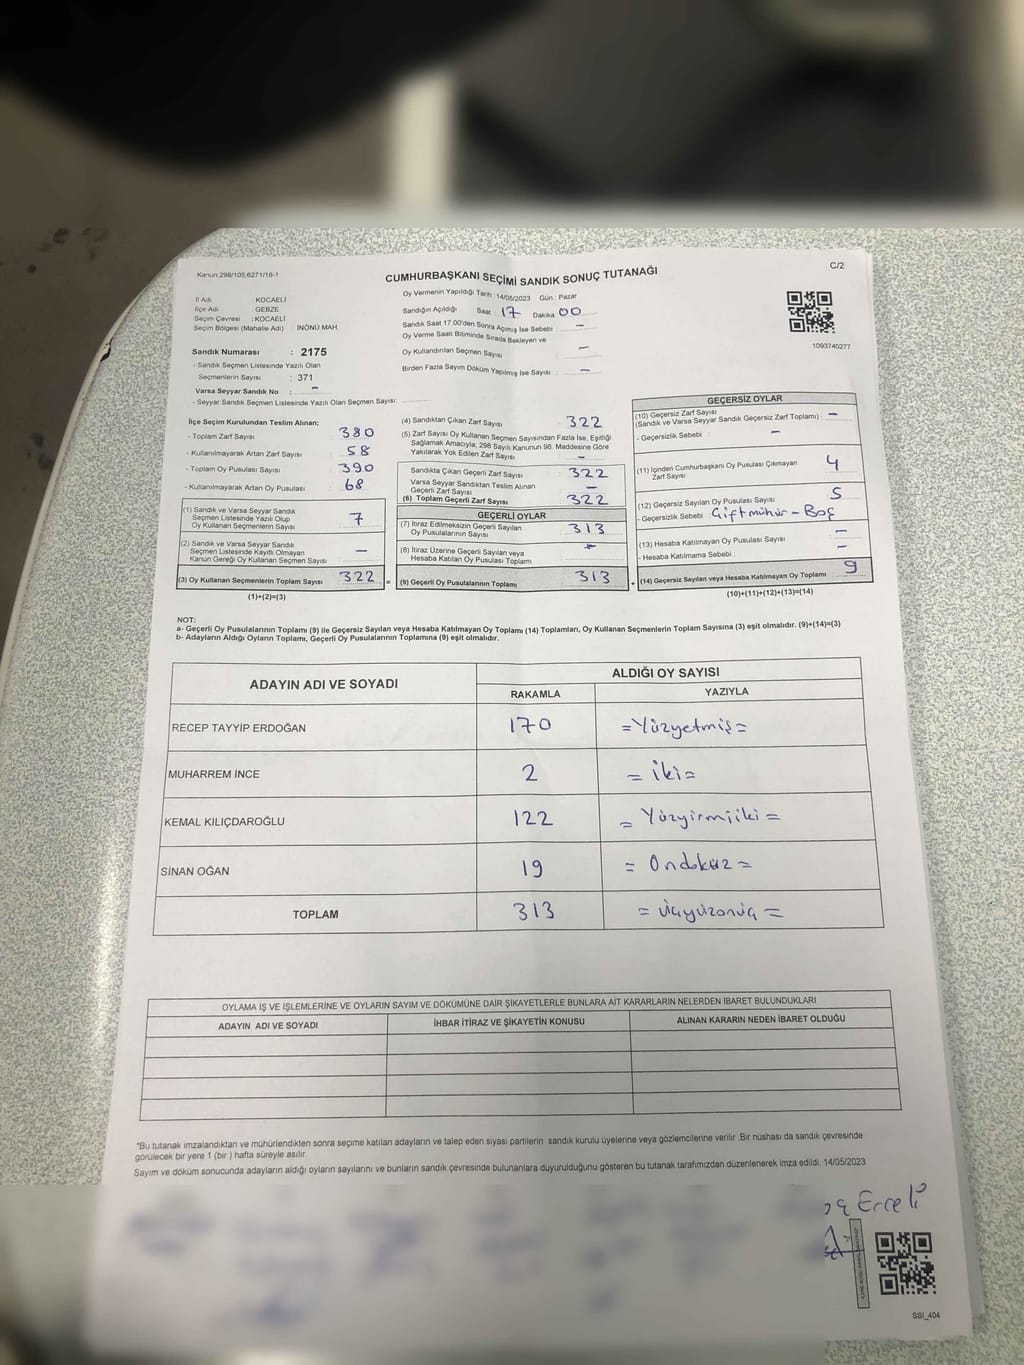 Kanun:298/105;6271/18-1
C/2
CUMHURBAŞKANI SEÇİMİ SANDIK SONUÇ TUTANAĞI
İl Adı : KOCAELİ
İlçe Adı : GEBZE
Seçim Çevresi : KOCAELİ
Seçim Bölgesi (Mahalle Adı) İNÖNÜ MAH.
Sandık Numarası : 2175
- Sandık Seçmen Listesinde Yazılı Olan
Seçmenlerin Sayısı : 371
Varsa Seyyar Sandık No : –
- Seyyar Sandık Seçmen Listesinde Yazılı Olan Seçmen Sayısı:
Oy Vermenin Yapıldığı Tarih : 14/05/2023 Gün : Pazar
Sandığın Açıldığı Saat : 17 Dakika 00
Sandık Saat 17.00'den Sonra Açılmış İse Sebebi : –
Oy Verme Saati Bitiminde Sırada Bekleyen ve
Oy Kullandırılan Seçmen Sayısı –
Birden Fazla Sayım Döküm Yapılmış İse Sayısı : –
1093740277
İlçe Seçim Kurulundan Teslim Alınan:
- Toplam Zarf Sayısı 380
- Kullanılmayarak Artan Zarf Sayısı 58
- Toplam Oy Pusulası Sayısı 390
- Kullanılmayarak Artan Oy Pusulası 68
(1) Sandık ve Varsa Seyyar Sandık
Seçmen Listesinde Yazılı Olup
Oy Kullanan Seçmenlerin Sayısı 7
(2) Sandık ve Varsa Seyyar Sandık
Seçmen Listesinde Kayıtlı Olmayan
Kanun Gereği Oy Kullanan Seçmen Sayısı –
(3) Oy Kullanan Seçmenlerin Toplam Sayısı 322 =
(1)+(2)=(3)
(4) Sandıktan Çıkan Zarf Sayısı 322
(5) Zarf Sayısı Oy Kullanan Seçmen Sayısından Fazla İse, Eşitliği
Sağlamak Amacıyla; 298 Sayılı Kanunun 98. Maddesine Göre
Yakılarak Yok Edilen Zarf Sayısı –
Sandıkta Çıkan Geçerli Zarf Sayısı 322
Varsa Seyyar Sandıktan Teslim Alınan
Geçerli Zarf Sayısı –
(6) Toplam Geçerli Zarf Sayısı 322
GEÇERLİ OYLAR
(7) İtiraz Edilmeksizin Geçerli Sayılan
Oy Pusulalarının Sayısı 313
(8) İtiraz Üzerine Geçerli Sayılan veya
Hesaba Katılan Oy Pusulası Toplamı –
(9) Geçerli Oy Pusulalarının Toplamı 313 +
GEÇERSİZ OYLAR
(10) Geçersiz Zarf Sayısı
(Sandık ve Varsa Seyyar Sandık Geçersiz Zarf Toplamı) : –
- Geçersizlik Sebebi : –
(11) İçinden Cumhurbaşkanı Oy Pusulası Çıkmayan
Zarf Sayısı 4
(12) Geçersiz Sayılan Oy Pusulası Sayısı 5
- Geçersizlik Sebebi Çift mühür – Boş
(13) Hesaba Katılmayan Oy Pusulası Sayısı –
- Hesaba Katılmama Sebebi : –
(14) Geçersiz Sayılan veya Hesaba Katılmayan Oy Toplamı 9
(10)+(11)+(12)+(13)=(14)
NOT:
a- Geçerli Oy Pusulalarının Toplamı (9) ile Geçersiz Sayılan veya Hesaba Katılmayan Oy Toplamı (14) Toplamları, Oy Kullanan Seçmenlerin Toplam Sayısına (3) eşit olmalıdır. (9)+(14)=(3)
b- Adayların Aldığı Oyların Toplamı, Geçerli Oy Pusulalarının Toplamına (9) eşit olmalıdır.
ADAYIN ADI VE SOYADI
ALDIĞI OY SAYISI
RAKAMLA YAZIYLA
RECEP TAYYİP ERDOĞAN 170 =Yüzyetmiş=
MUHARREM İNCE 2 = iki=
KEMAL KILIÇDAROĞLU 122 = Yüzyirmiiki =
SİNAN OĞAN 19 = Ondokuz =
TOPLAM 313 = üçyüzonüç =
OYLAMA İŞ VE İŞLEMLERİNE VE OYLARIN SAYIM VE DÖKÜMÜNE DAİR ŞİKAYETLERLE BUNLARA AİT KARARLARIN NELERDEN İBARET BULUNDUKLARI
ADAYIN ADI VE SOYADI İHBAR İTİRAZ VE ŞİKAYETİN KONUSU ALINAN KARARIN NEDEN İBARET OLDUĞU
*Bu tutanak imzalandıktan ve mühürlendikten sonra seçime katılan adayların ve talep eden siyasi partilerin sandık kurulu üyelerine veya gözlemcilerine verilir .Bir nüshası da sandık çevresinde
görülecek bir yere 1 (bir ) hafta süreyle asılır.
Sayım ve döküm sonucunda adayların aldığı oyların sayılarını ve bunların sandık çevresinde bulunanlara duyurulduğunu gösteren bu tutanak tarafımızdan düzenlenerek imza edildi. 14/05/2023
Erceli
SSI_404